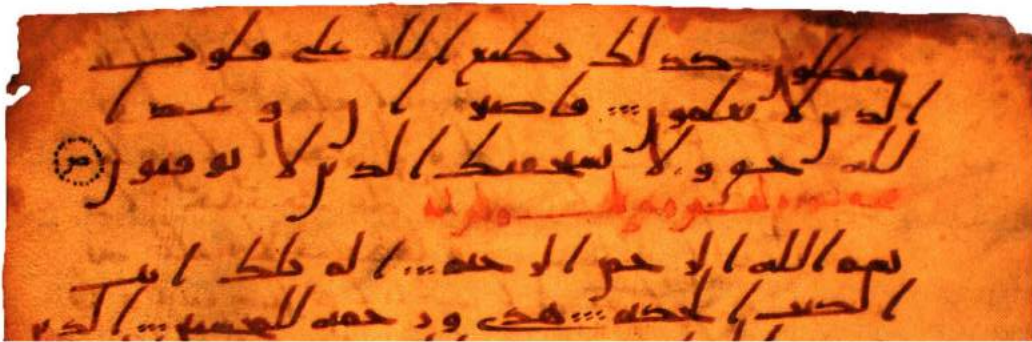 مبطلون كذلك يطبع الله على قلوب
الذين لا يعلمون فاصبر ان وعد ا
لله حق ولا يستخفنك الذين لا يوقنون
بسم الله الرحمن الرحيم الم تلك ايت
الكتب الحكيم هدى ورحمة للمحسنين الذين